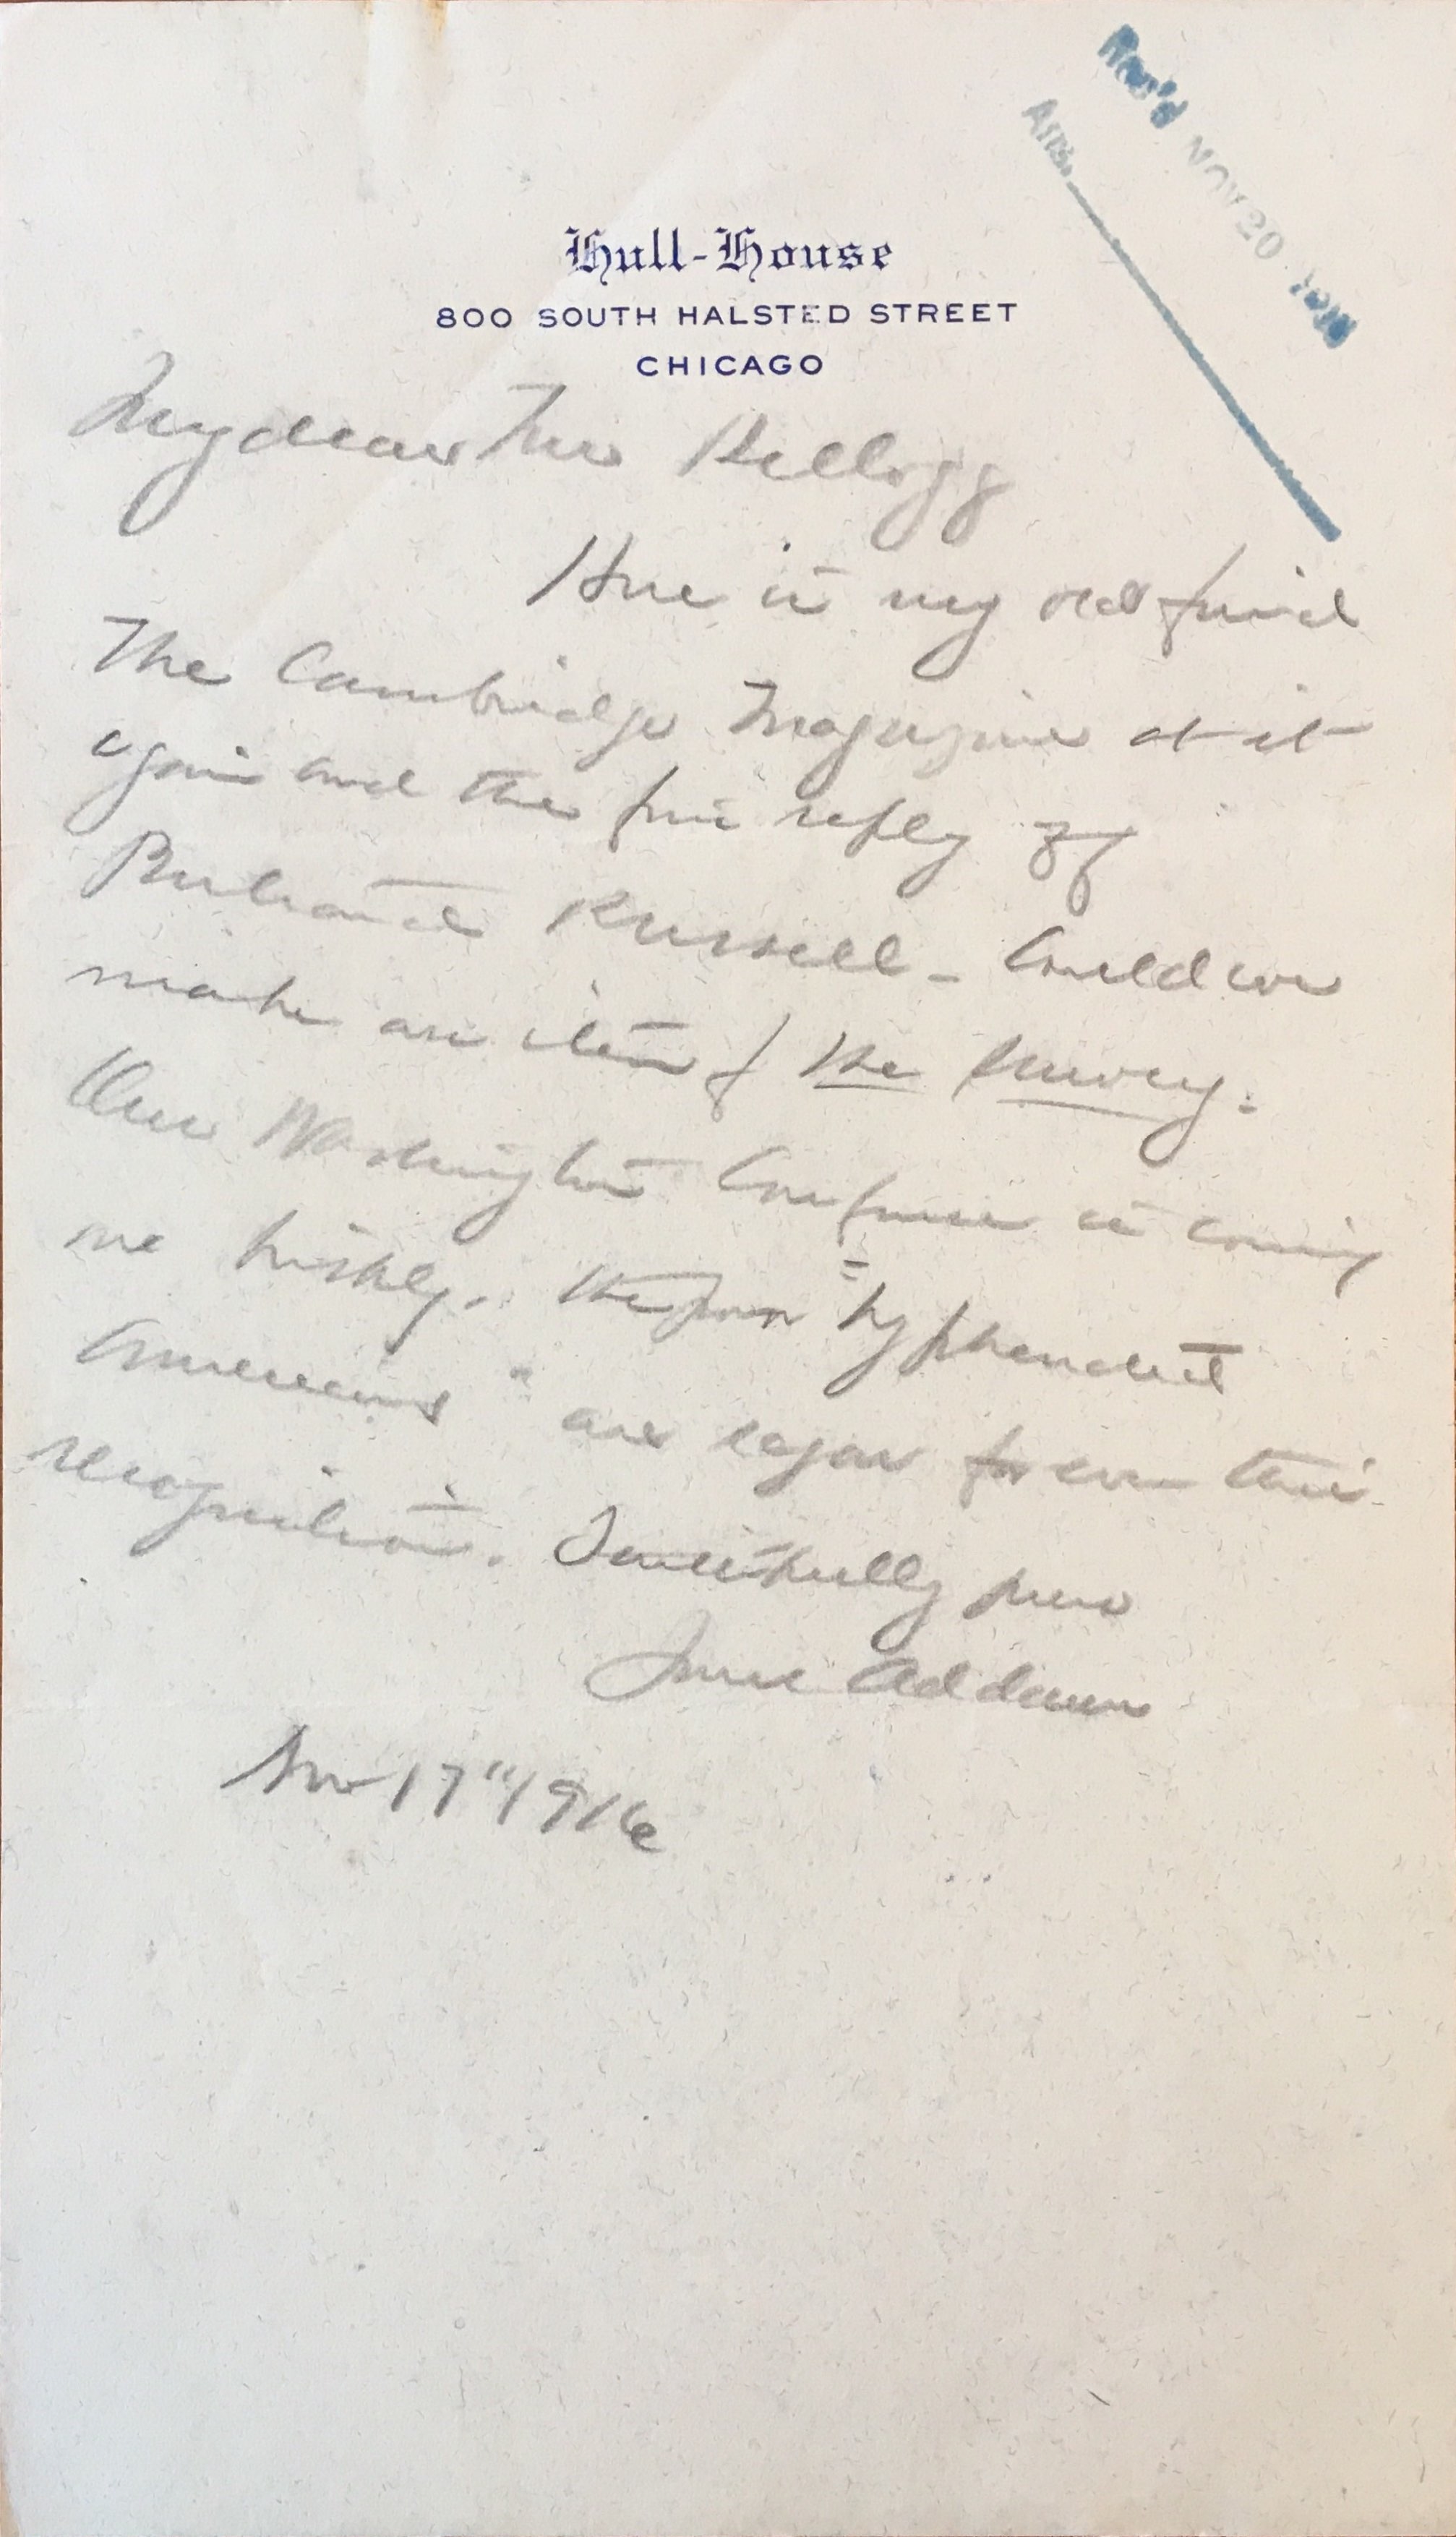 Rec'd NOV 20 1916
Ans.
Hull-House
800 SOUTH HALSTED STREET
CHICAGO
My dear Mr Kellogg
Here is my old friend
The Cambridge Magazine at it
again and the fine reply of
Bertrand Russell – Could we
make an item of the Survey.
Our Washington Conference is coming
on briskly. the "hyphenated
Americans" are eager for even this
recognition. Faithfully yours
Jane Addams
Nov 17" 1916